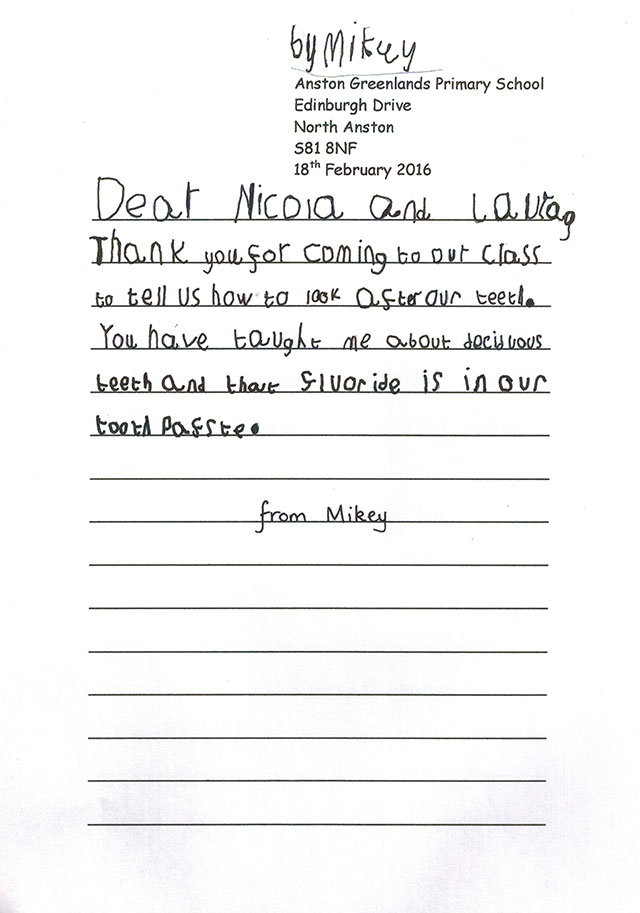 by Mikey
Anston Greenlands Primary School
Edinburgh Drive
North Anston
S81 8NF
18th February 2016
Dear Nicola and Laura,
Thank you for coming to our class
to tell us how to look after our teeth.
You have taught me about deciduous
teeth and that fluoride is in our
tooth Pafste.
from Mikey